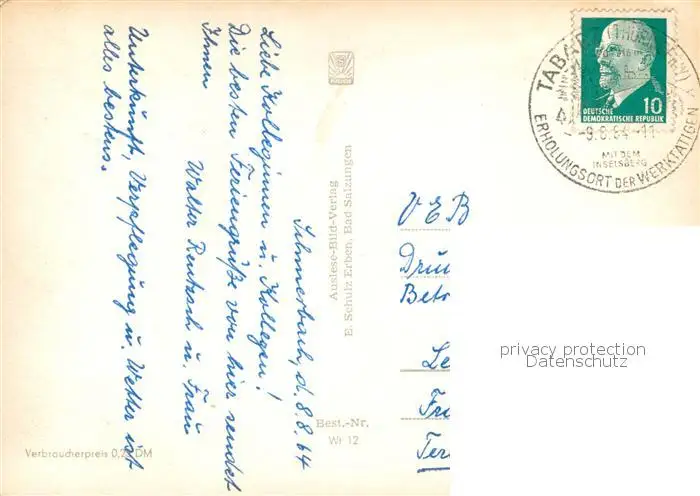 Schmerbach, d. 8.8.64
Liebe Kolleginnen u. Kollegen!
Die besten Feriengrüße von hier sendet
Ihnen
Walter Rentzsch u. Frau
Unterkunft, Verpflegung u. Wetter ist
alles bestens.
Auslese-Bild-Verlag
E. Schulz Erben, Bad Salzungen
Best.-Nr.
Wr 12
Verbraucherpreis 0,20 DM
DEUTSCHE
DEMOKRATISCHE REPUBLIK
10
TABARZ (THÜR
-9.8.64-11
MIT DEM
INSELSBERG
ERHOLUNGSORT DER WERKTÄTIGEN
VEB
Dru
Betr
Le
Fra
privacy protection
Datenschutz